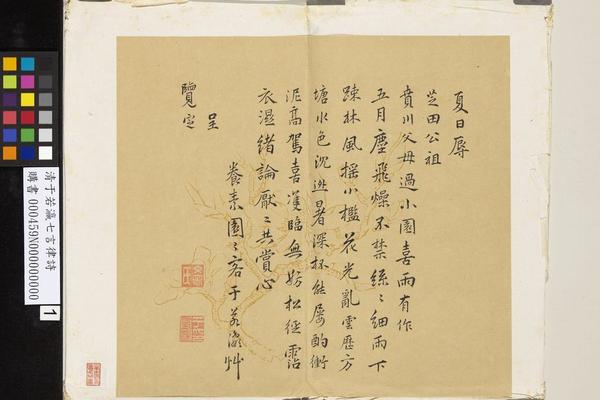 夏日辱
芝田公祖
賁川父母過小園喜雨有作
五月塵飛燥不禁絲〻細雨下
疎林風搖小檻花光亂雲歷方
塘水色沉逃暑深杯能屢酌衝
泥高駕喜雙臨無妨松徑霑
衣濕緒論厭〻共賞心
呈
覽定
養素園〻客于若瀛艸
清于若瀛七言律詩
購書 000459N000000000
1